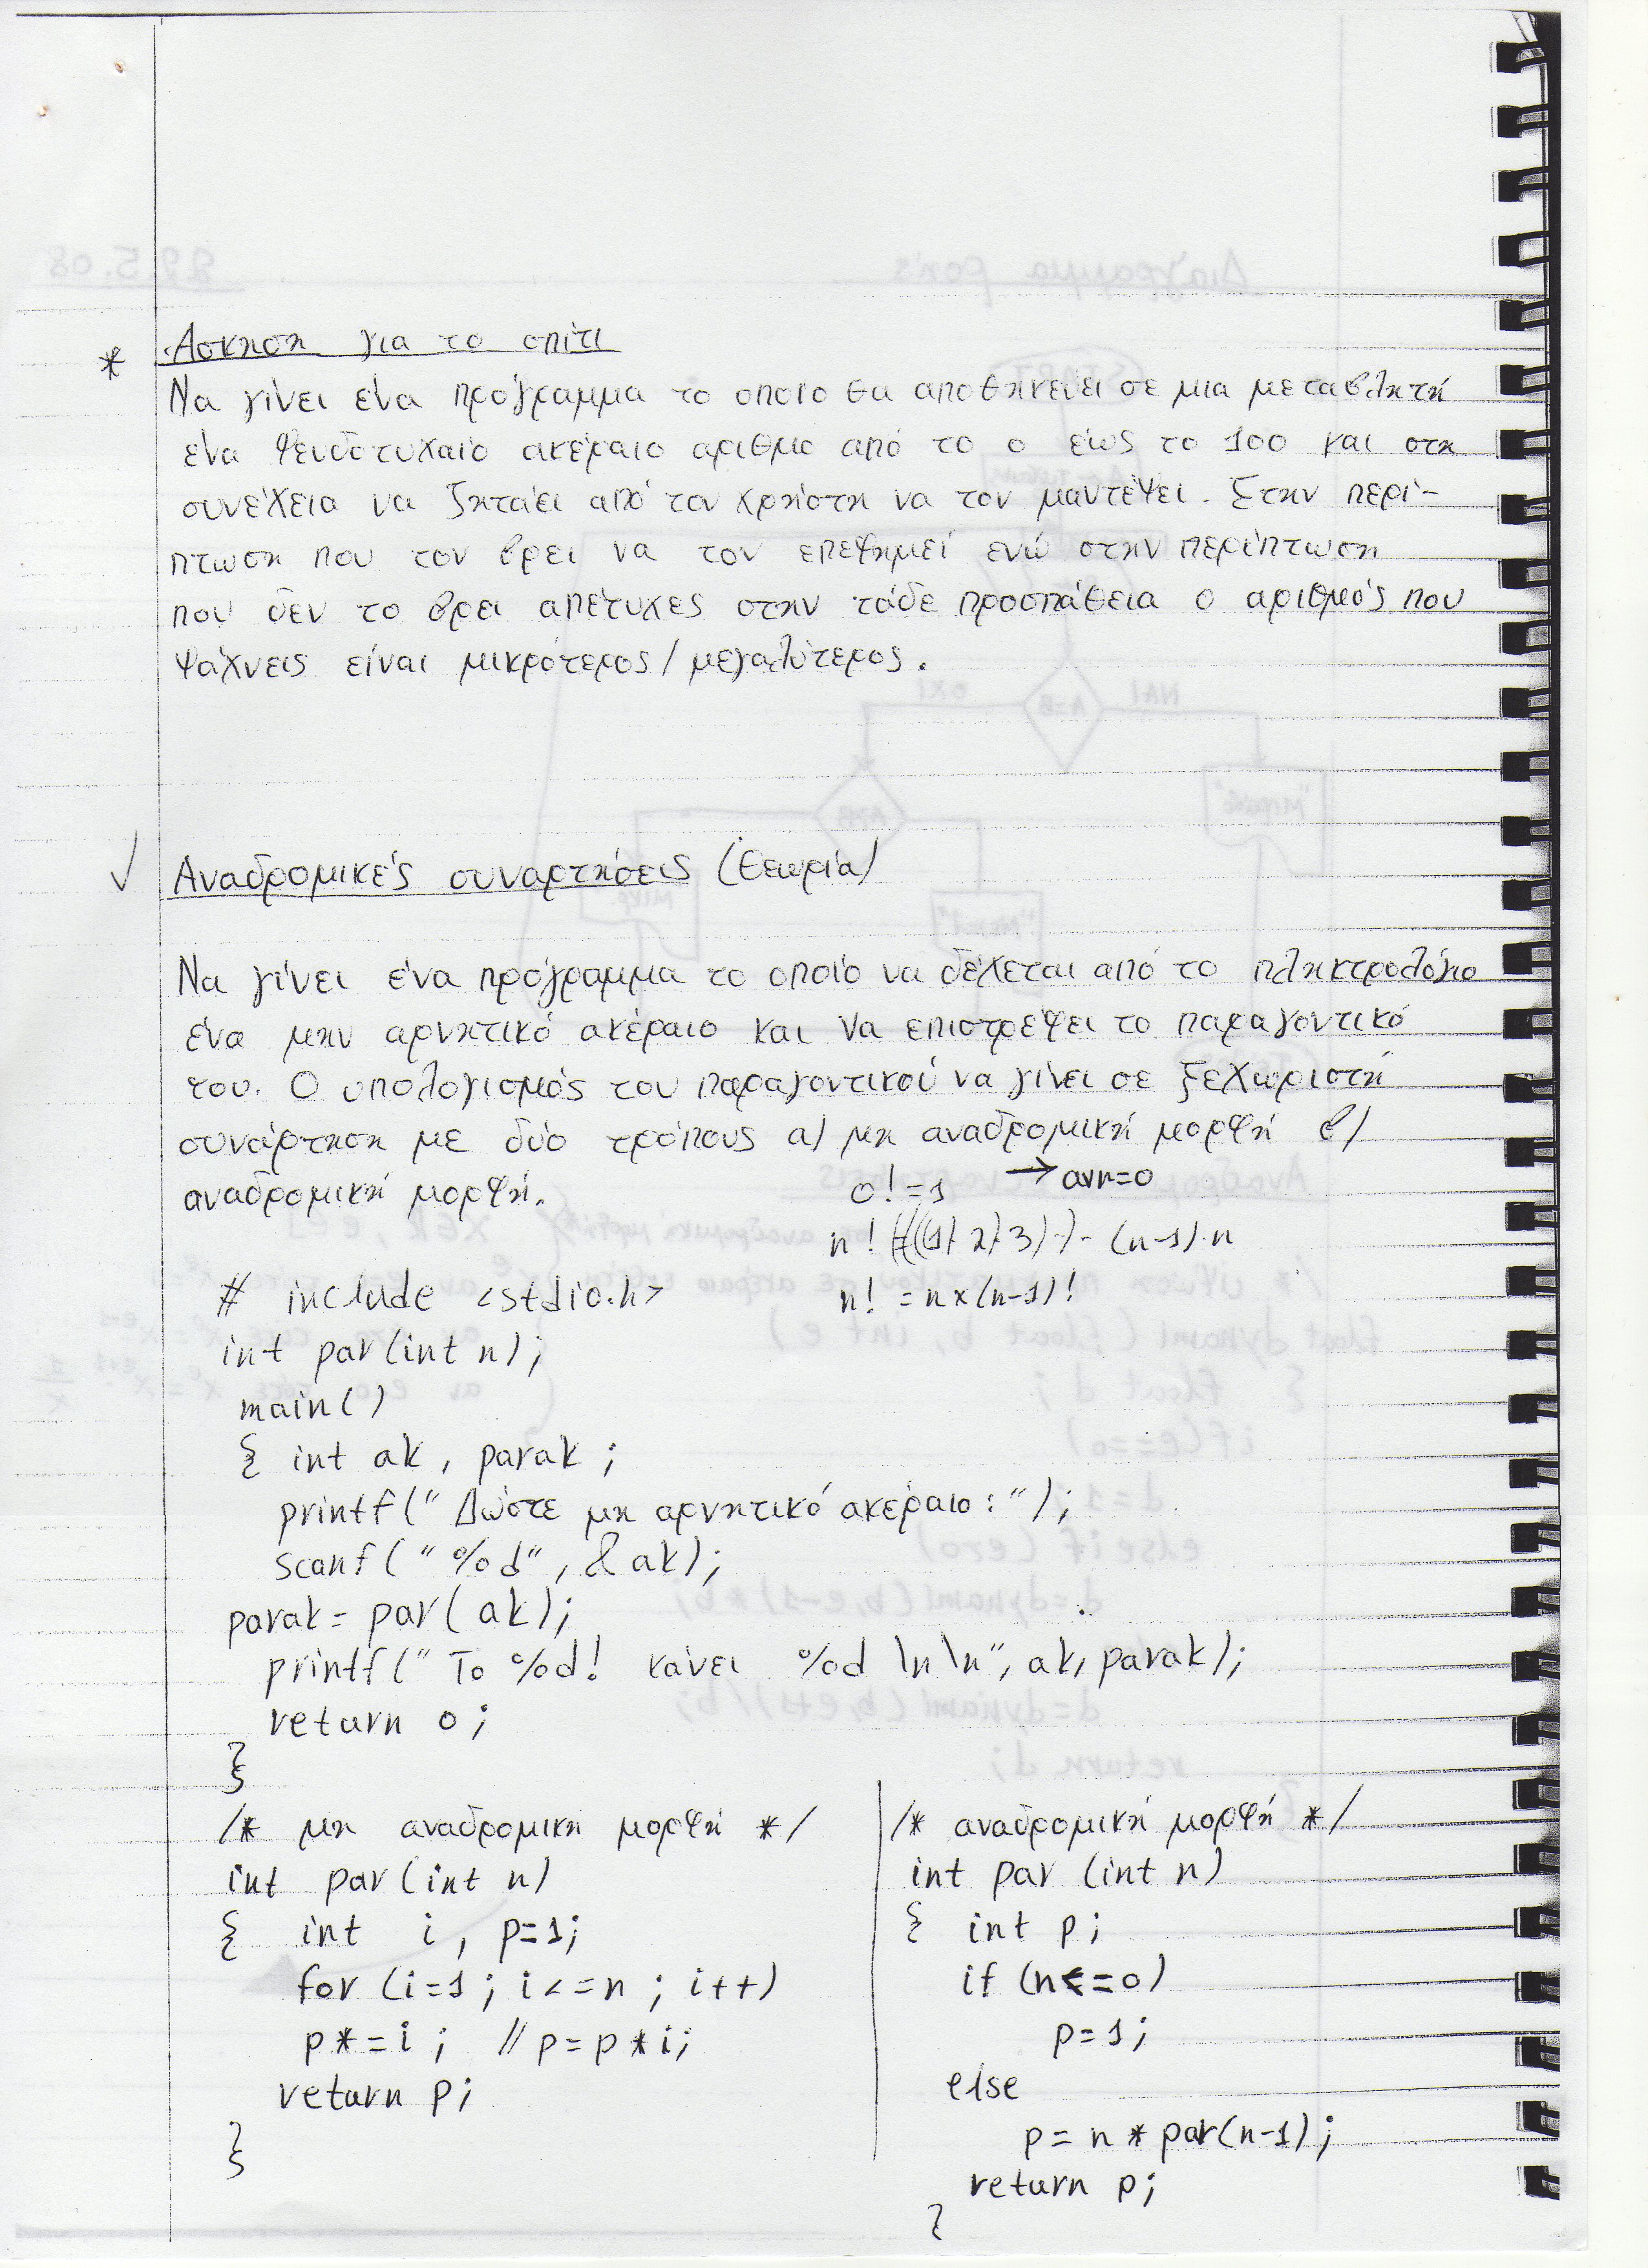 * Ασκηση για το σπίτι
Να γίνει ένα πρόγραμμα το οποιο θα αποθηκεύει σε μια μεταβλητή
ένα ψευδοτυχαίο ακέραιο αριθμο από το 0 έως το 100 και στη
συνέχεια να ζητάει από τον χρήστη να τον μαντέψει. Στην περί-
πτωση που τον βρει να τον επεφημεί ενώ στην περίπτωση
που δεν το βρει απέτυχες στην τάδε προσπάθεια ο αριθμός που
ψάχνεις είναι μικρότερος/μεγαλύτερος.
✓ Αναδρομικές συναρτήσεις (Θεωρία)
Να γίνει ένα πρόγραμμα το οποίο να δέχεται από το πληκτρολόγιο
ένα μην αρνητικό ακέραιο και να επιστρέψει το παραγοντικό
του. Ο υπολογισμός του παραγοντικού να γίνει σε ξεχωριστή
συνάρτηση με δύο τρόπους α) μη αναδρομική μορφή β)
αναδρομική μορφή.
0! = 1 → αν n=0
n! = (((1) 2) 3) ·) - (n-1) · n
n! = n x (n-1)!
# include <stdio.h>
int par(int n);
main()
{ int ak, parak;
printf(" Δώστε μη αρνητικό ακέραιο:");
scanf(" %d", &ak);
parak= par( ak);
printf(" Το %d! κάνει %d \n\n", ak, parak);
return 0;
}
/* μη αναδρομικη μορφή */
int par(int n)
{ int i, p=1;
for (i=1; i<=n; i++)
p*=i; // p=p*i;
return p;
}
/* αναδρομική μορφή */
int par (int n)
{ int p;
if (n<=0)
p=1;
else
p= n * par(n-1);
return p;
}